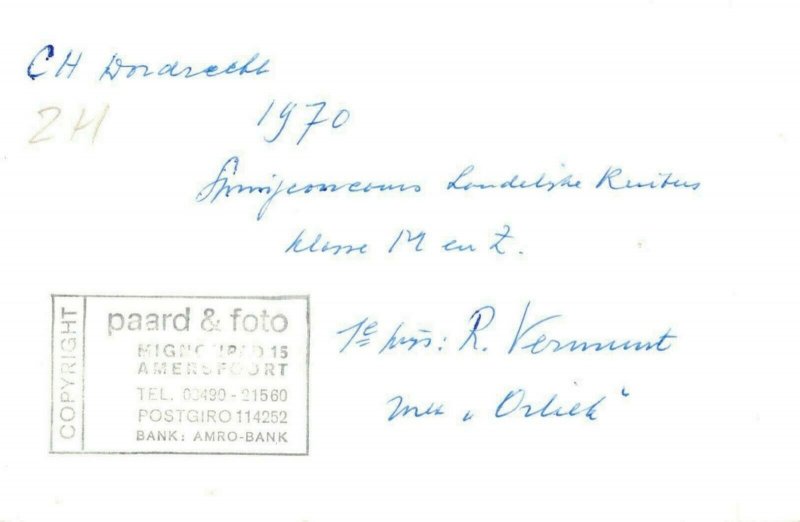 CH Dordrecht
ZH
1970
Springconcours Landelijke Ruiters
klasse M en Z.
COPYRIGHT
paard & foto
15
AMERSFOORT
TEL. 03490-21560
POSTGIRO 114252
BANK: AMRO-BANK
1e prijs: R. Vermunt
met "Orliek"